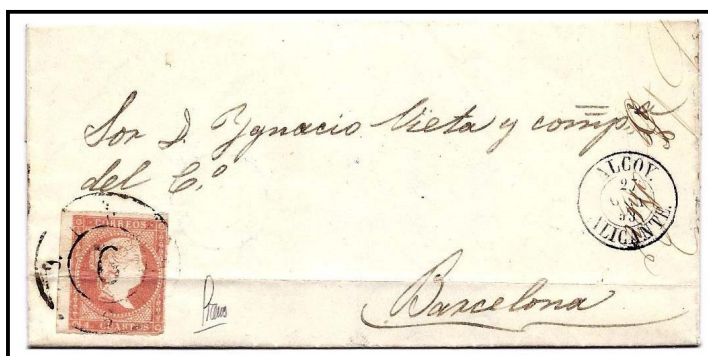 Sor. D. Ygnacio Vieta y comp.a
del C.o
ALCOY.
ALICANTE.
CORREOS
CUARTOS
Barcelona